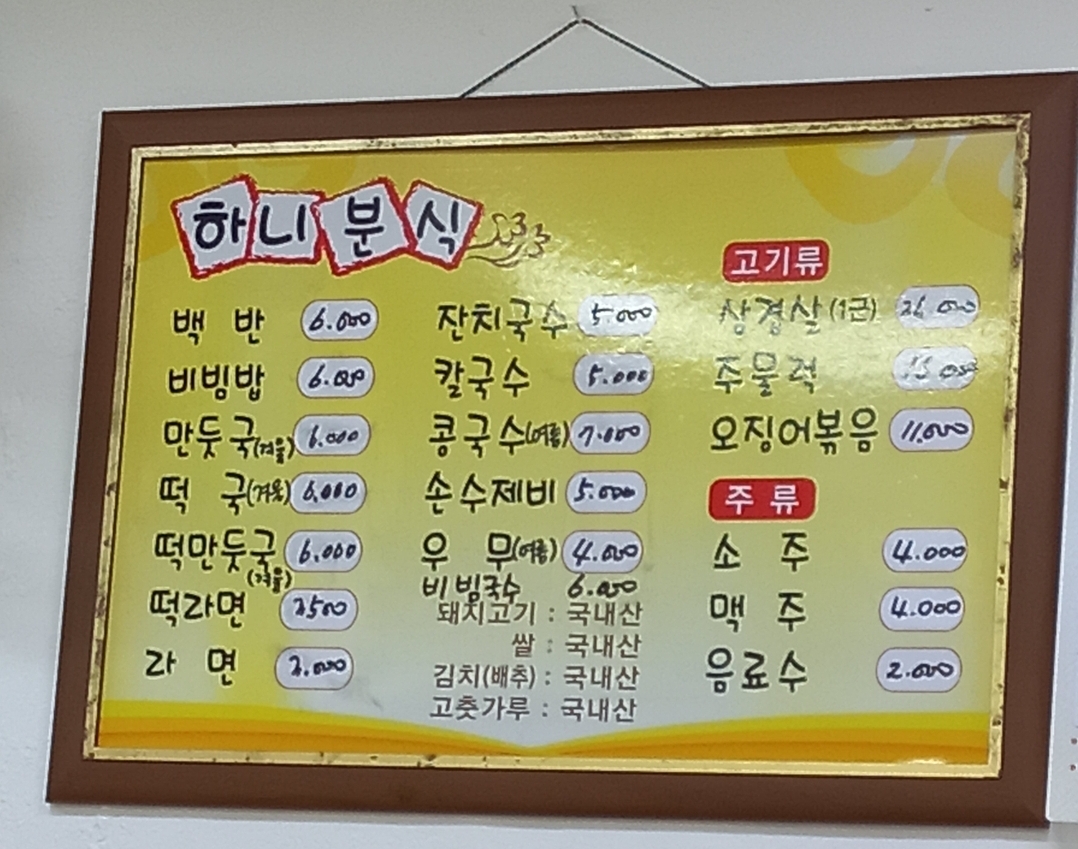 하니분식
백 반 6.000
비빔밥 6.000
만둣국(겨울) 6.000
떡 국(겨울) 6.000
떡만둣국 6.000
(겨울)
떡라면 3500
라 면 3.000
잔치국수 5.000
칼국수 5.000
콩국수(여름) 7.000
손수제비 5.000
우 무(여름) 4.000
비빔국수 6.000
돼지고기 : 국내산
쌀 : 국내산
김치(배추) : 국내산
고춧가루 : 국내산
고기류
삼겹살(1근)
주물럭
오징어볶음 11.000
주 류
소 주 4.000
맥 주 4.000
음료수 2.000